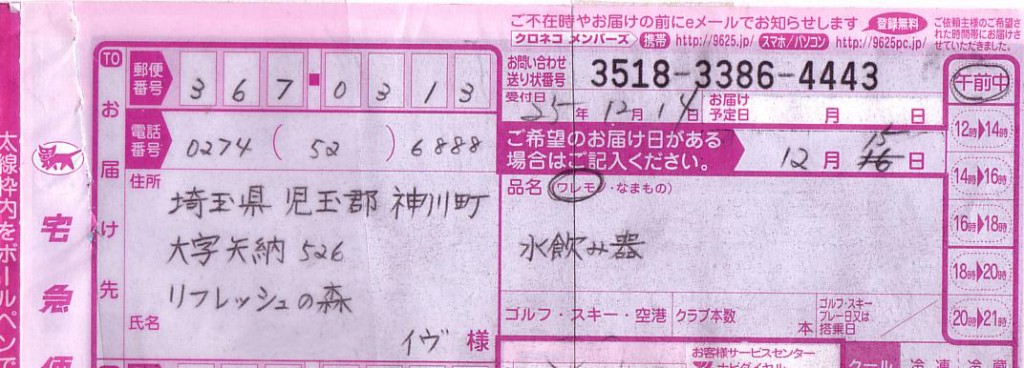 ご不在時やお届けの前にeメールでお知らせします 登録無料
クロネコ メンバーズ 携帯 http://9625.jp/ スマホ/パソコン http://9625pc.jp/
ご依頼主様のご希望さ
れた時間帯にお届けさ
せていただきました。
TO
お届け先
郵便番号 367-0313
電話番号 0274(52)6888
住所
埼玉県 児玉郡 神川町
大字矢納 526
リフレッシュの森
氏名
イヴ 様
お問い合わせ
送り状番号 3518-3386-4443
受付日 25年 12月 14日
お届け予定日 月 日
ご希望のお届け日がある
場合はご記入ください。
12月 16 15日
品名(ワレモノ・なまもの)
水飲み器
ゴルフ・スキー・空港 クラブ本数 本
ゴルフ・スキー
プレー日又は
搭乗日
午前中
12時▶14時
14時▶16時
16時▶18時
18時▶20時
20時▶21時
お客様サービスセンター
ナビダイヤル
クール 冷凍・冷蔵
宅急便
太線枠内をボールペンで